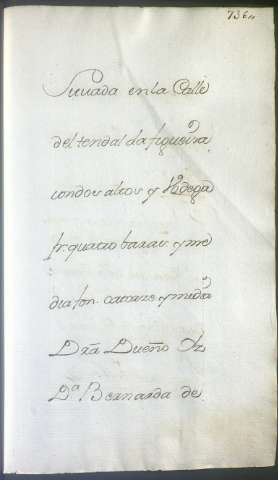 736
Situada en la Calle
del tendal da figueira
con dos altos y Vodega
fr. quatro baras y me
dia fon. catorze y media
Dra Dueño Dn
Da Bernarda de